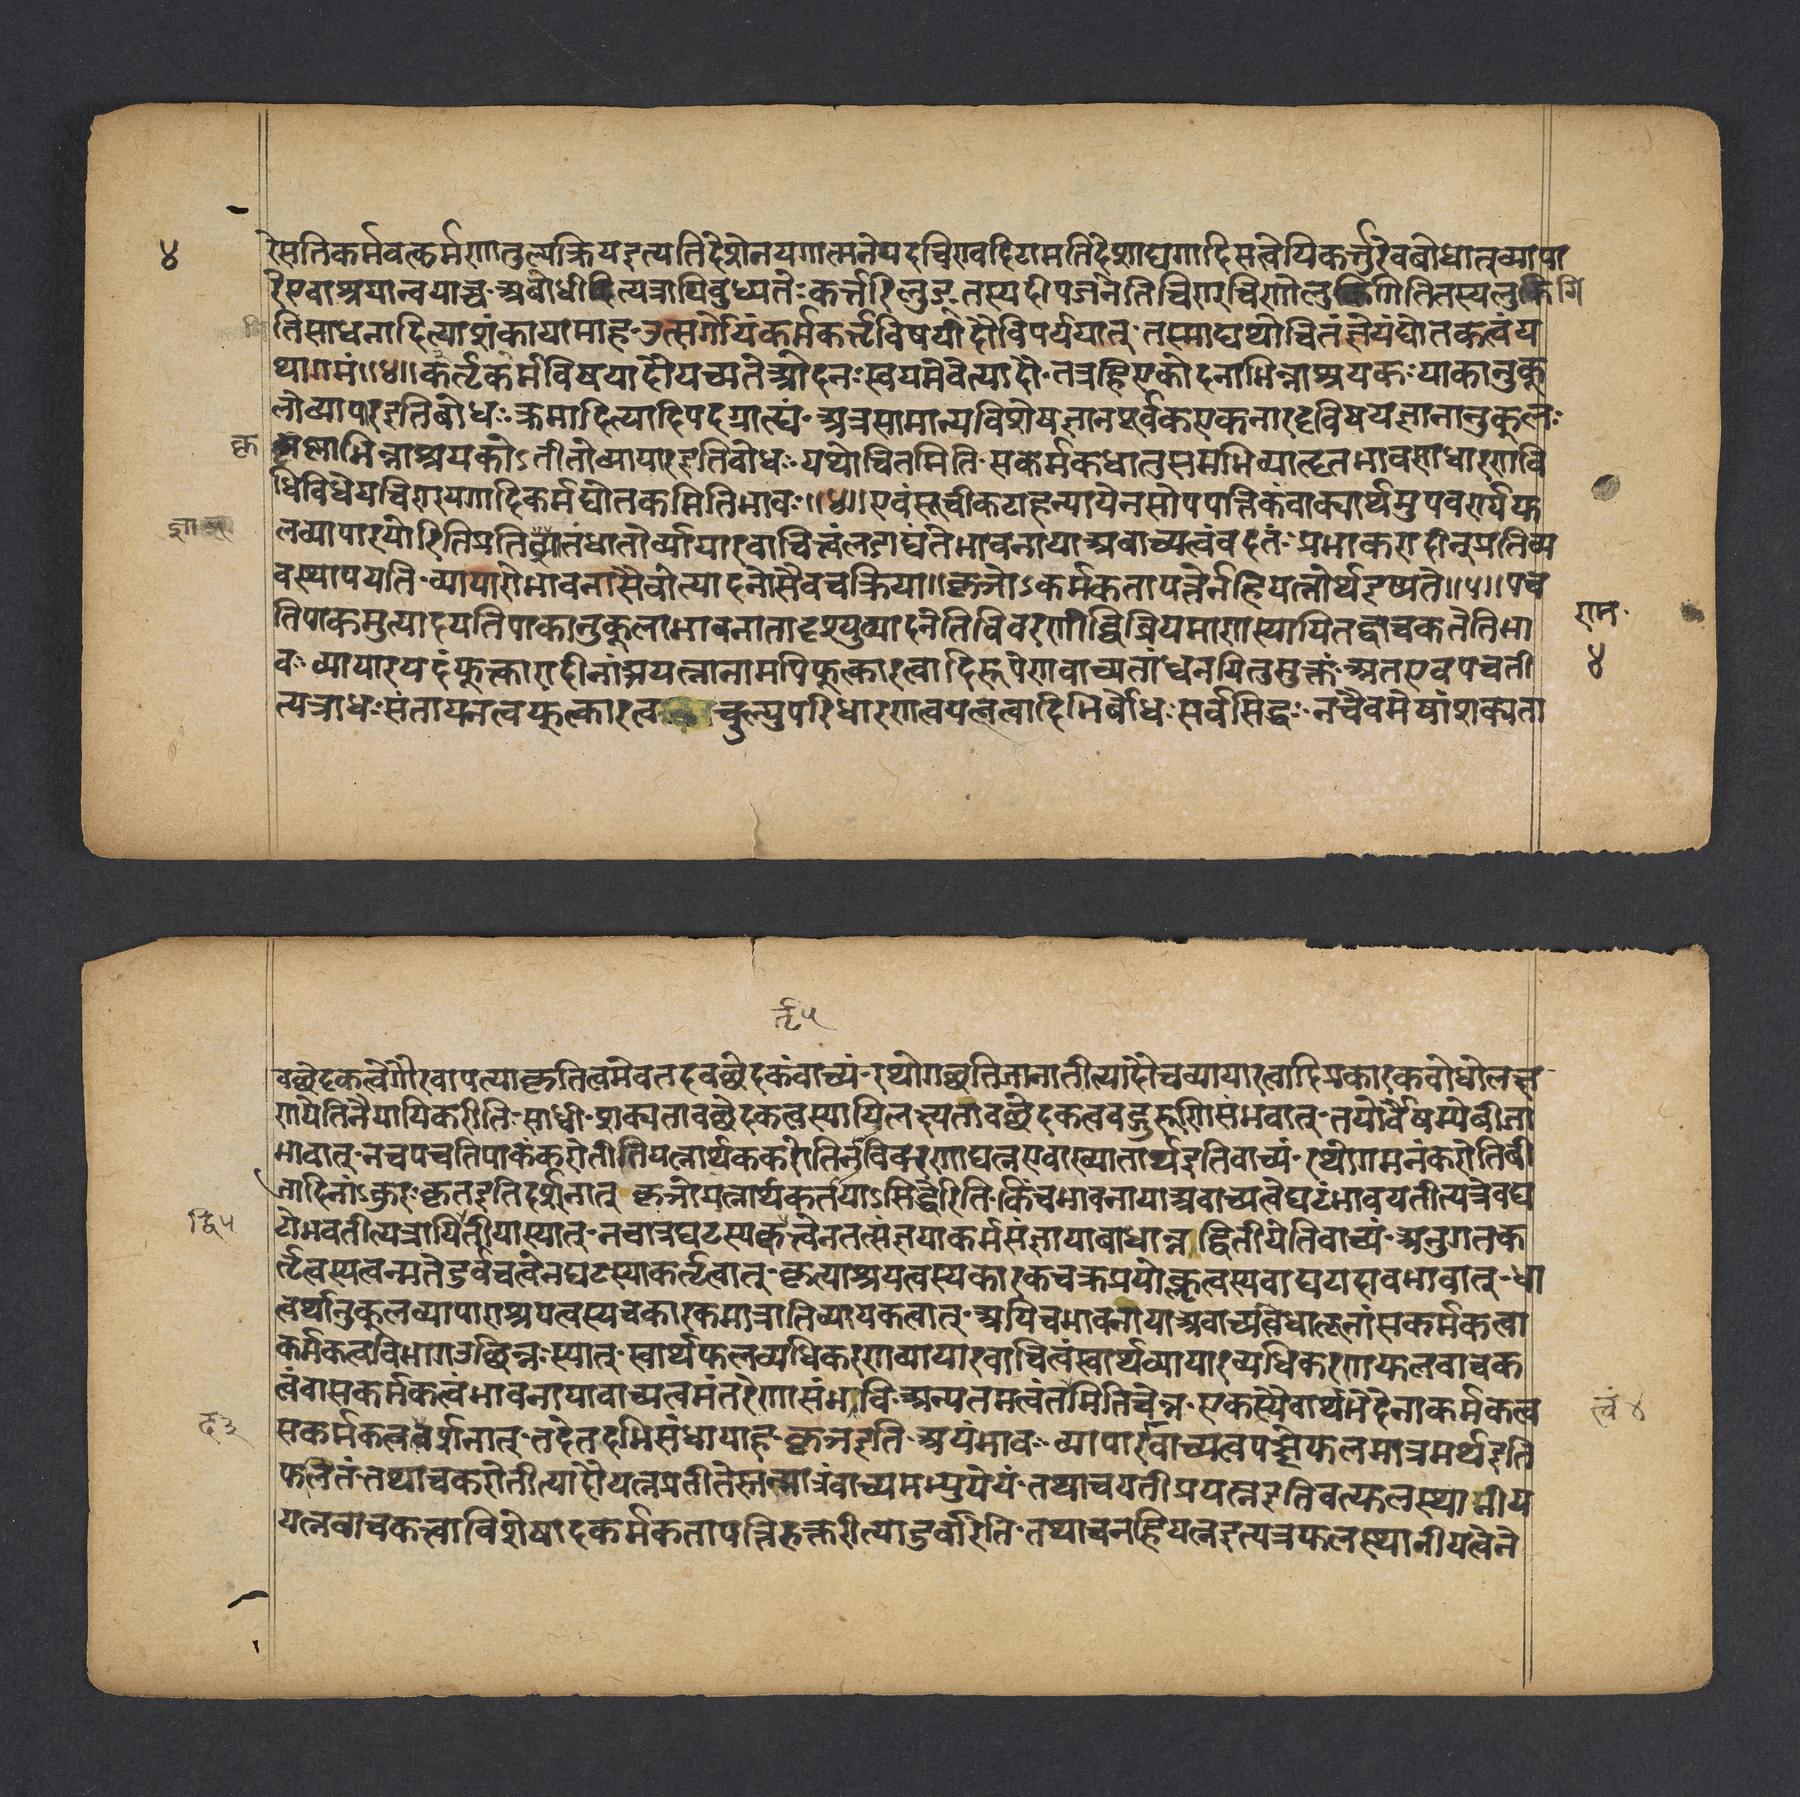 ४
रेसतिकर्मवत्कर्मणातुल्यक्रियइत्यतिदेशेनयगात्मनेपदचिण्वदिटामतिदेशाद्यगादिसत्वेपिकर्त्तुरेवबोधात्व्यापा
रेएवाश्रयान्वयाच्च अबोधीदित्यत्रापिबुध्यतेः कर्त्तरिलुङ् तस्यदीपजनेतिचिण् चिणोलुगितितस्यलुकि
तिसाधनादित्याशंकायामाह उत्सर्गोयंकर्मकर्त्तृविषयादौविपर्ययात् तस्माद्यथोचितंज्ञेयंद्योतकत्वंय
थागमं॥४॥कर्तृकर्मविषयादौपच्यतेओदनः स्वयमेवेत्यादौ तत्रहिएकोदनाभिन्नाश्रयकः पाकानुकू
लोव्यापारइतिबोधः क्रमादित्यादिपदग्राह्यं अत्रसामान्यविशेषज्ञानपूर्वकएकनारदविषयज्ञानानुकूलः
कृ
कृष्णाभिन्नाश्रयकोऽतीतोव्यापारइतिबोधः यथोचितमिति सकर्मकधातुसमभिव्याहृतभावसाधारणवि
धिविधेयचिण्यगादिकर्मद्योतकमितिभावः॥४॥एवंसूचीकटाहन्यायेनसोपपत्तिकंवाक्यार्थमुपवर्ण्यफ
लव्यापारयोरितिप्रतिज्ञातंधातोर्व्यापारवाचित्वंलडाद्यंतेभावनायाअवाच्यत्वंवदतः प्रभाकरादीन्प्रतिव्य
वस्थापयति व्यापारोभावनासैवोत्पादनासैवचक्रिया॥कृञोऽकर्मकतापत्तेर्नहियत्नोर्थइष्यते॥५॥पच
तिपाकमुत्पादयतिपाकानुकूलाभावनातादृश्युत्पादनेतिविवरणाद्विव्रियमाणस्यापितद्वाचकतेतिभा
राम
वः व्यापारपदंफूत्कारादीनांअयत्नानामपिफूत्कारत्वादिरूपेणवाच्यतांध्वनयितुमुक्तं अतएवपचती
४
त्यत्राधःसंतापनत्वफूत्कारत्वचुल्ल्युपरिधारणत्वयत्नत्वादिभिर्बोधः सर्वसिद्धः नचैवमेषांशक्यता
र्तृ५
वछेदकत्वेगौरवापत्त्याकृतित्वमेवतदवछेदकंवाच्यं रथोगछतिजानातीत्यादौचव्यापारत्वादिप्रकारकबोधोलक्ष
णयेतिनैयायिकरीतिः साध्वी शक्यतावछेदकत्वस्यापिलक्ष्यतावछेदकत्ववद्गुरुणिसंभवात् तयोर्वैषम्येबीजा
भावात् नचपचतिपाकंकरोतीतियत्नार्थककरोतिनाविवरणाद्यत्नएवाख्यातार्थइतिवाच्यं रथोगमनंकरोतिबी
जादिनांऽकुरः कृतइतिदर्शनात् कृञोयत्नार्थकर्तयाऽसिद्धेरिति किंचभावनायाअवाच्यत्वेघटंभावयतीत्यत्रेवघ
द्वि५
टोभवतीत्यत्रापितीयास्यात् नचात्रघटस्यकर्त्त्वेनतत्संज्ञयाकर्मसंज्ञायाबाधान्नद्वितीयेतिवाच्यं अनुगतक
र्तृत्वस्यत्वन्मतेदुर्वचत्वेनघटस्याकर्तृत्वात् कृत्याश्रयत्वस्यकारकचक्रप्रयोक्तृत्वस्यवाघटादावभावात् धा
त्वर्थानुकूलव्यापाराश्रयत्वस्यचकारकमात्रातिव्यापकत्वात् अपिचभावनायाअवाच्यत्वेधातूनांसकर्मकत्वा
कर्मकत्वविभागउछिन्नः स्यात् स्वार्थफलव्यधिकरणव्यापारवाचित्वंस्वार्थव्यापारव्यधिकरणफलवाचक
त्वंवासकर्मकत्वंभावनायावाच्यत्वमंतरेणासंभवि अन्यतमत्वंतमितिचेन्न एकस्यैवार्थभेदेनाकर्मकत्व
त्वं४
द३
सकर्मकत्वदर्शनात् तदेतदभिसंधायाह कृञइति अयंभावः व्यापारवाच्यत्वपक्षेफलमात्रमर्थइति
फलितं तथाचकरोतीत्यादौयत्नप्रतीतेस्तन्मात्रंवाच्यमभ्युपेयं तथाचयतीप्रयत्नइतिवत्फलस्थानीय
यत्नवाचकत्वाविशेषादकर्मकतापत्तिरुक्तरीत्यादुर्वारेति तथाचनहियत्नइत्यत्रफलस्थानीयत्वेने